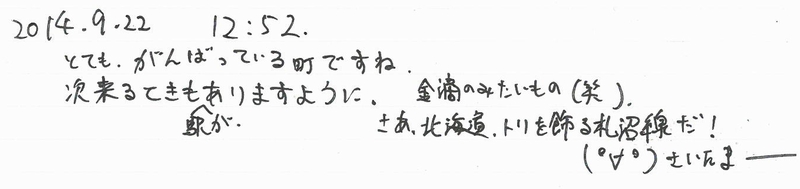 2014.9.22 12:52.
とても、がんばっている町ですね.
次来るときもありますように、 金滴のみたいもの(笑).
駅が. さあ、北海道、トリを飾る札沼線だ!
(°∀°)さいたまーー